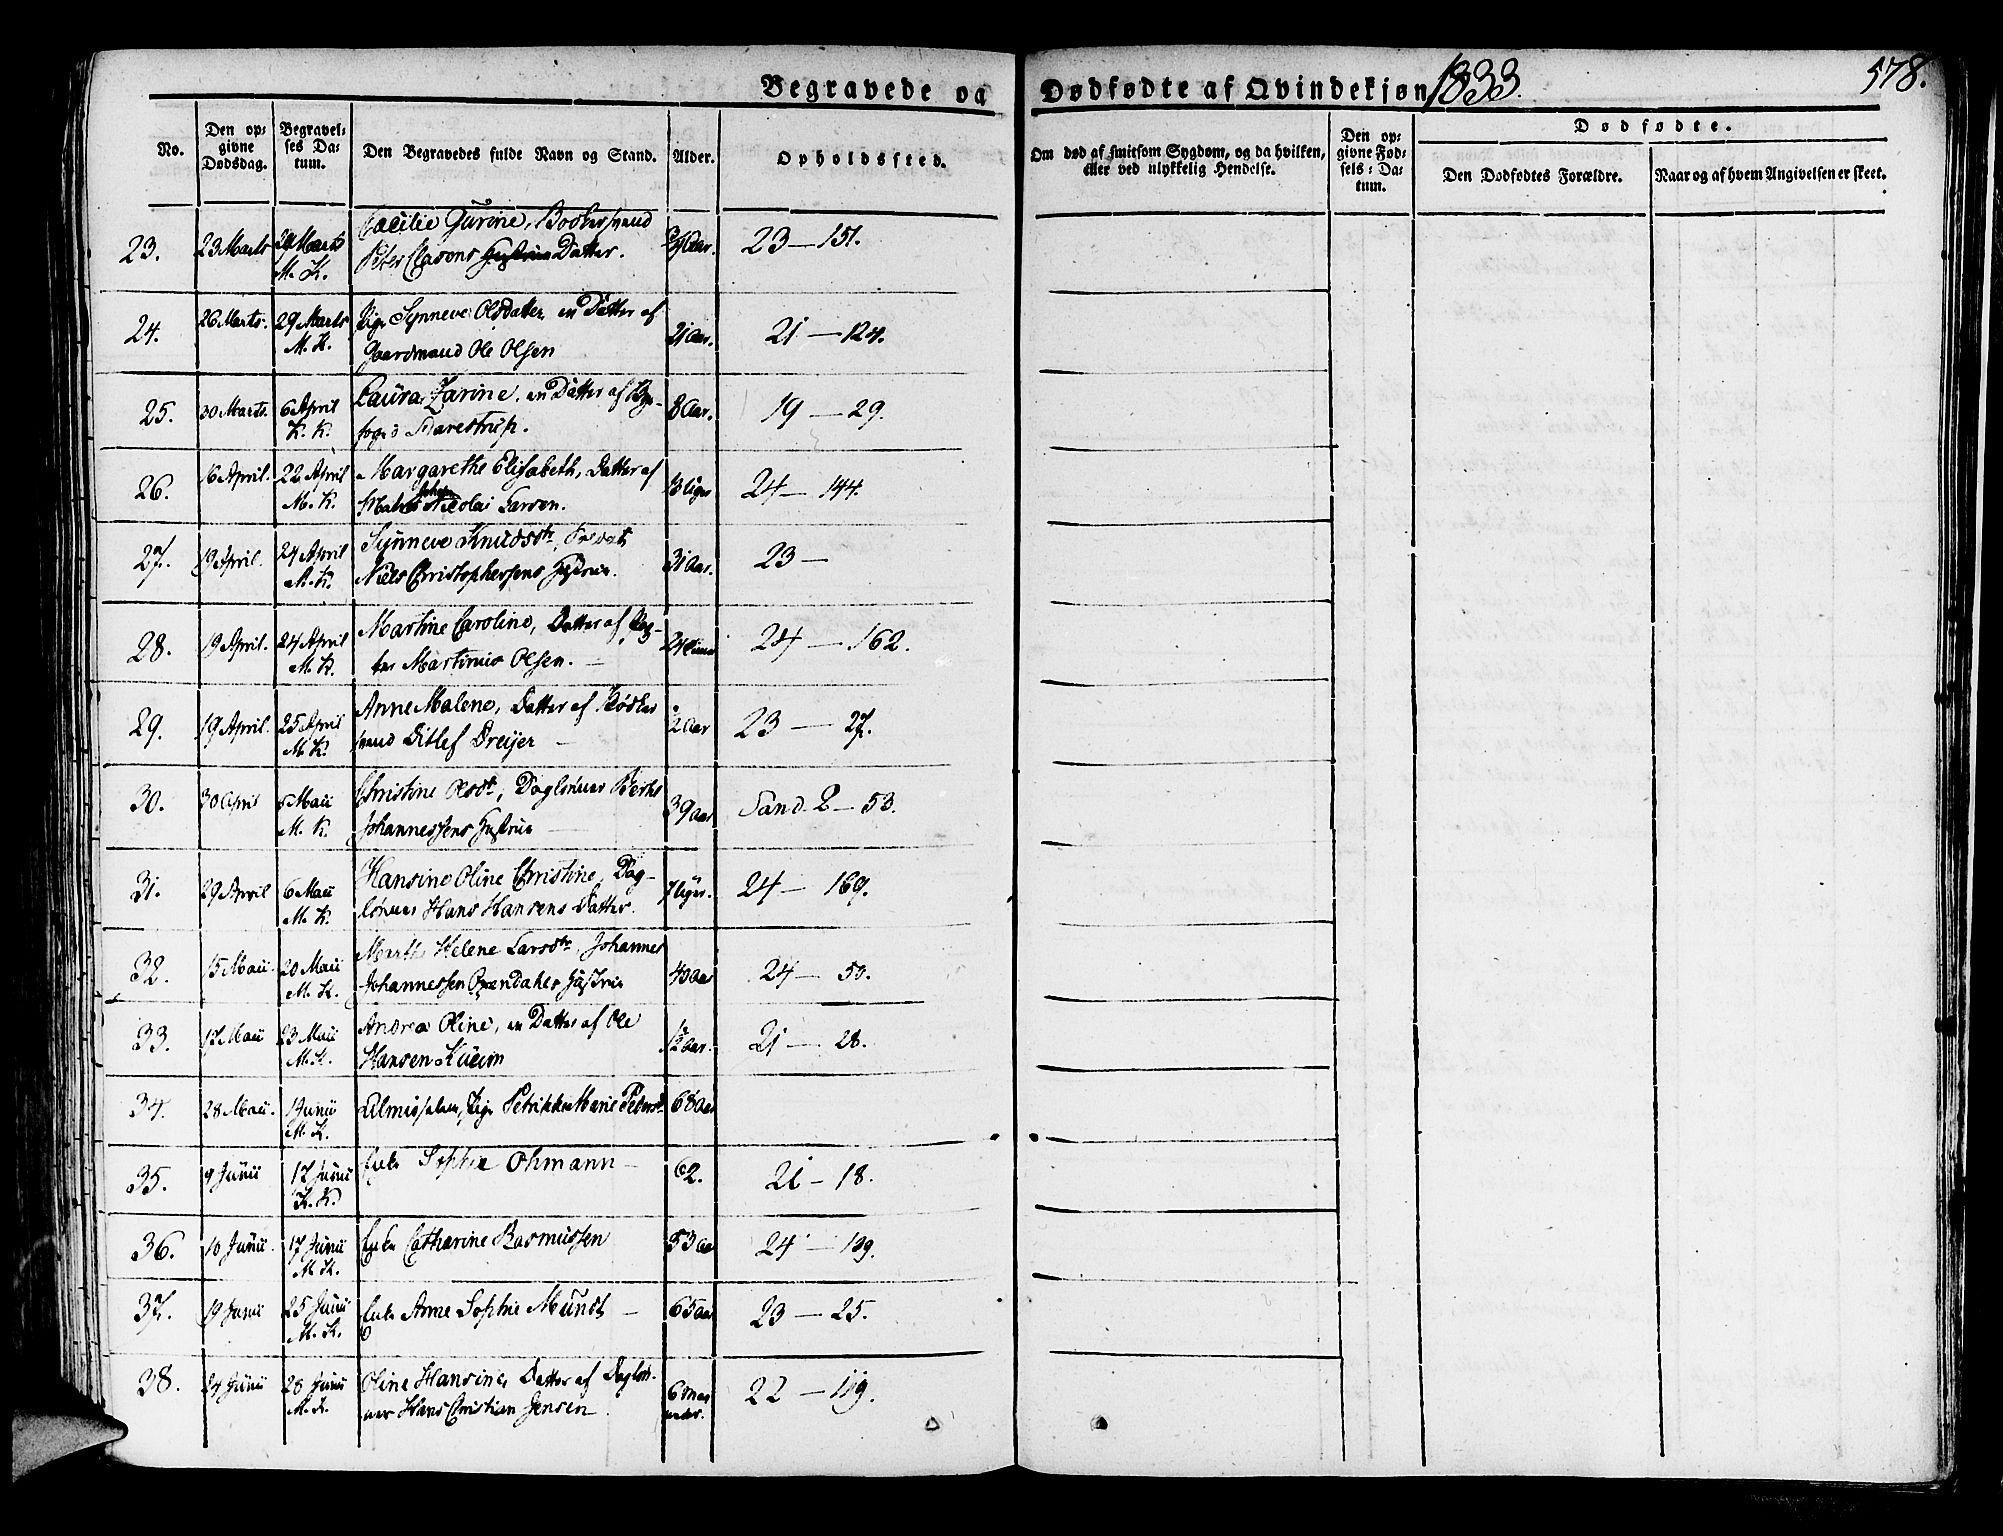 Begravede og Dødfødte af Qvindekjøn 1833.
578.
No.
Den op-
givne
Dødsdag.
Begravel-
ses Da-
tum.
Den Begravedes fulde Navn og Stand.
Alder.
Opholdssted.
Om død af smitsom Sygdom, og da hvilken,
eller ved ulykkelig Hendelse.
Den op-
givne Fød-
sels-Da-
tum.
Dødfødte.
Den Dødfødtes Forældre.
Naar og af hvem Angivelsen er skeet.
23. 23 Marts 29 Marts Cæcilie Gurine, Bødkersvend 23 — 151.
M. K. Peter Clasons Datter.
24. 26 Marts. 29 Marts Pige Synneve Olsdatter en Datter af 21 Aar. 21 — 124.
M. K. Gaardmand Ole Olsen
25. 30 Marts. 6 April Laura Zarine, en Datter af By- 8 Aar. 19 — 29.
K. K. foged
26. 16 April. 22 April Margarethe Elisabeth, Datter af 24 — 144.
M. K. Nicolai Larsen.
27. 19 April. 24 April Synneve Knudsdtr, 31 Aar. 23 —
M. K. Niels Christophersens Hustrue.
28. 19 April. 24 April Martine Caroline, Datter af 24 — 162.
M. K. Martinius Olsen. —
29. 19 April. 25 April Anne Malene, Datter af Bødker 2 Aar 23 — 27.
M. K. svend Ditlef Dreyer —
30. 30 April 5 Maii Christine Olsdt, Daglønner 39 Aar Sand. 2 — 53.
M. K. Johannessens Hustrue —
31. 29 April 6 Maii Hansine Oline Christine, Dag- 7 Uger. 24 — 169.
M. K. lønner Hans Hansens Datter.
32. 15 Maii. 20 Maii Marthe Helene Larsdtr, Johannes 40 Aar 24 — 50.
M. K. Johannessen Hustrue
33. 17 Maii 23 Maii Andrea Oline, en Datter af Ole 12 Aar. 21 — 28.
M. K. Hansen
34. 28 Maii. 1 Junii Almisselem, Pige Petrikke Marie 68 Aar
M. K.
35. 9 Junii 17 Junii Enke Sophie Ohmann — 62. 21 — 18.
K. K.
36. 10 Junii. 17 Junii Enke Catharine Rasmussen 53 Aar 24 — 139.
M. K.
37. 19 Junii 25 Junii Enke Anne Sophie Mundt — 65 Aar 23 — 25.
M. K.
38. 24 Junii 28 Junii Oline Hansine, Datter af Dagløn- 6 Maa- 22 — 119.
M. K. ner Hans Christian Jensen neder.